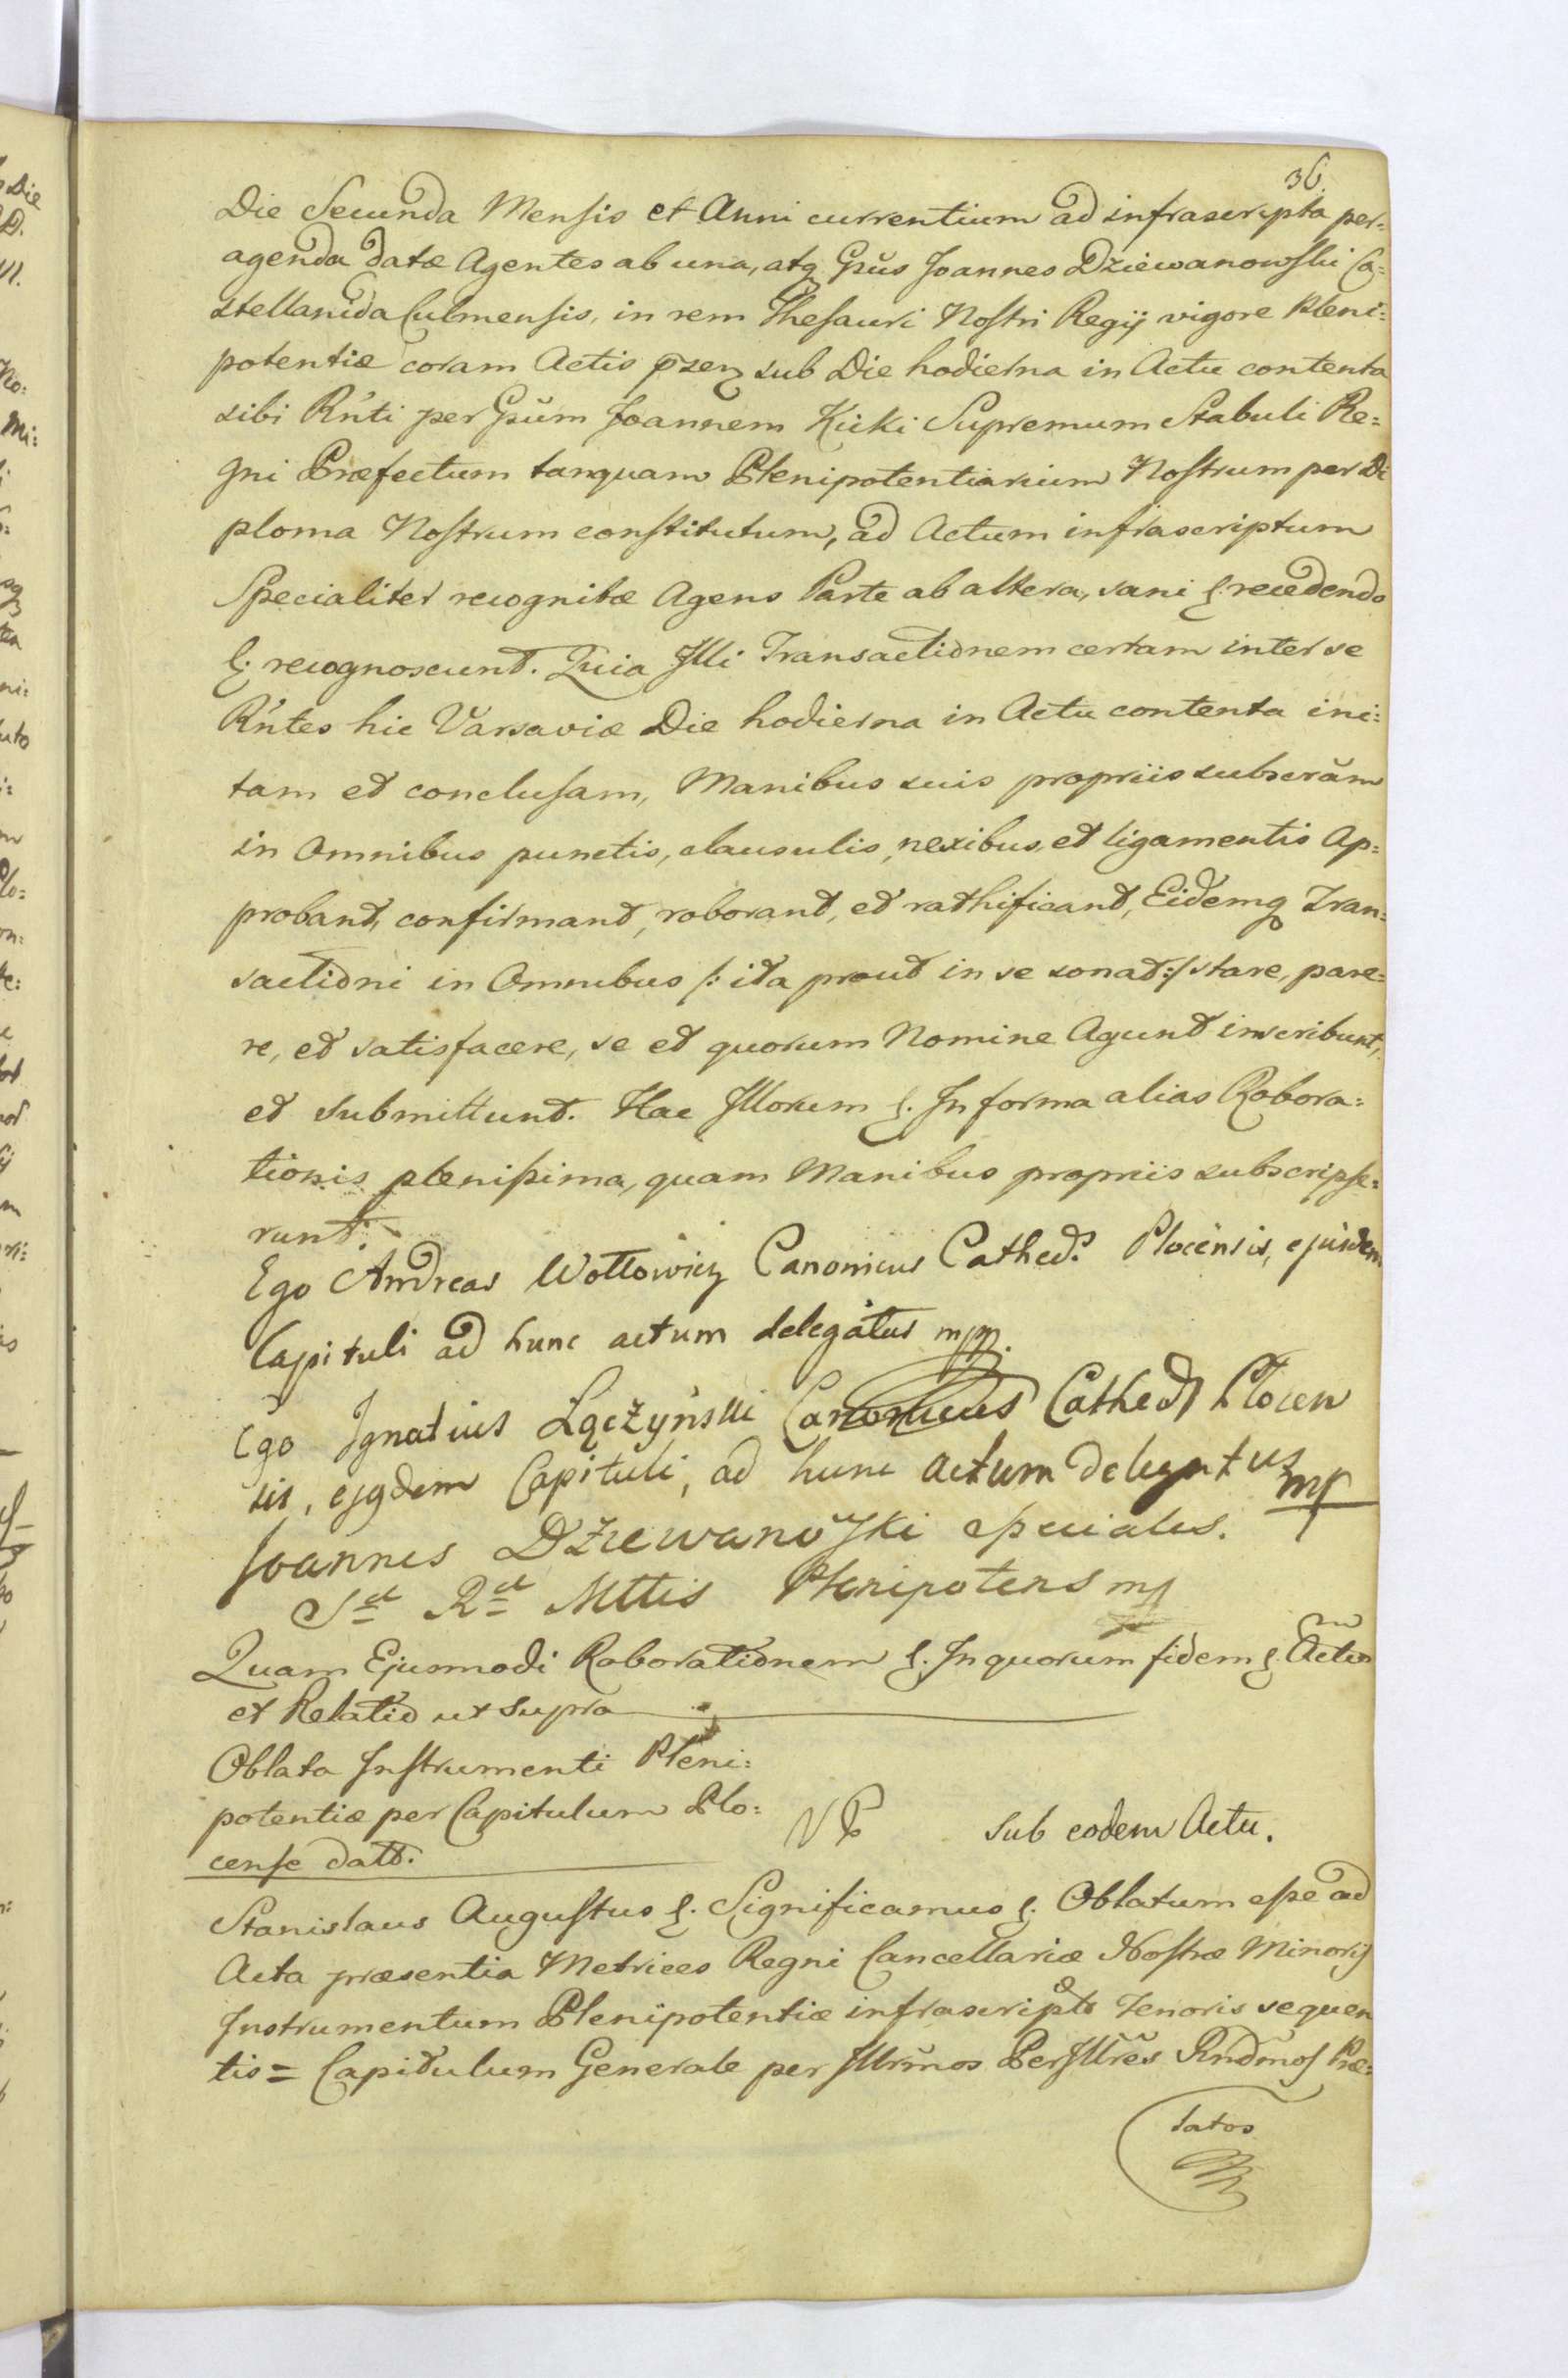 36.
Die Secunda Mensis et Anni currentium ad infrascripta per=
agenda datæ Agentes ab una, atq Gsŭs Joannes Dziewanowski Ca=
stellanida Culmensis, in rem Thesauri Nostri Regij vigore Pleni=
potentiæ coram Actis p̄zen sub Die hodierna in Actu contenta
sibi Rńti per Gsŭm Joannem Kicki Supremum Stabuli Re=
gni Præfectum tanquam Plenipotentiarium Nostrum per Di
ploma Nostrum constitutum, ad Actum infrascriptum
Specialiter recognitæ Agens Parte ab altera, sani &. recedendo
&. recognoscunt. Quia Illi Transactionem certam inter se
Rńtes hic Varsaviæ Die hodierna in Actu contenta ini=
tam et conclusam, Manibus suis propriis subscrăm
in Omnibus punctis, clausulis, nexibus, et ligamentis Ap=
probant, confirmant, roborant, et rathificant, Eidemq Tran=
sactioni in Omnibus /: ita prout in se sonat:/ stare, pare=
re, et satisfacere, se et quorum Nomine Agunt inscribunt,
et submittunt. Hac Illorum &. In forma alias Robora=
tionis plenissima, quam Manibus propriis subscripse=
runt.
Ego Andreas Wołłowicz Canonicus Cathed. Plocensis, ejusdem
Capituli ad hunc actum delegatus mpp.
Ego Ignatius Łączyński Canonicus Cathed Plocen
sis, ejqdem Capituli, ad hunc actum delegatus mp
Joannes Dziewanoski specialis.
Sæ Ræ Mttis Plenipotens mp
Quam Ejusmodi Roborationem &. In quorum fidem &. Actum
et Relatio ut supra
Oblata Instrumenti Pleni=
potentiæ per Capitulum Plo=
cense datt.
sub eodem Actu.
Stanislaus Augustus &. Significamus &. Oblatum esse ad
Acta præsentia Metrices Regni Cancellariæ Nostræ Minoris
Instrumentum Plenipotentiæ infrascripto Tenoris sequen
tis = Capitulum Generale per Illrm̃os PerIllr̃es Rnd̃mos Præ=
latos